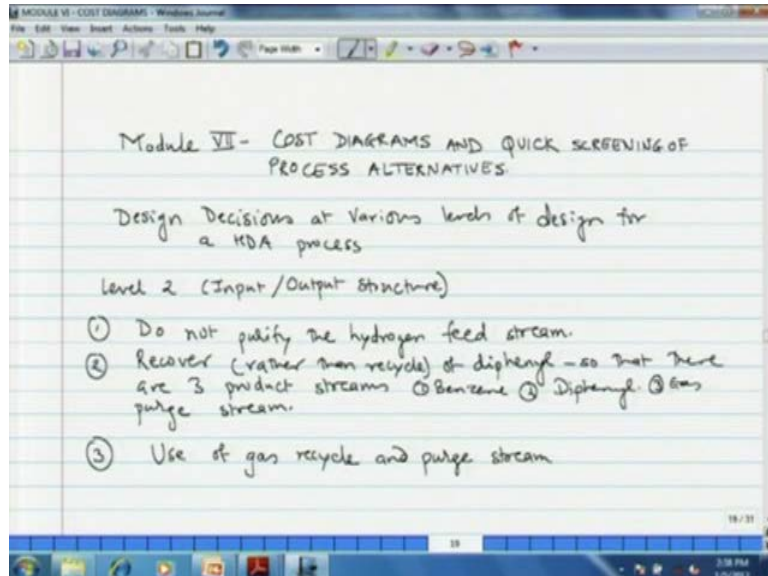 MODULE VI - COST DIAGRAMS - Windows Journal
File Edit View Insert Actions Tools Help
Page Width
Module VII - COST DIAGRAMS AND QUICK SCREENING OF
PROCESS ALTERNATIVES.
Design Decisions at various levels of design for
a HDA process
Level 2 (Input/Output Structure)
① Do not purify the hydrogen feed stream.
② Recover (rather than recycle) of diphenyl - so that there
are 3 product streams ① Benzene ② Diphenyl. ③ Gas
purge stream.
③ Use of gas recycle and purge stream
19/31
19
2:38 PM